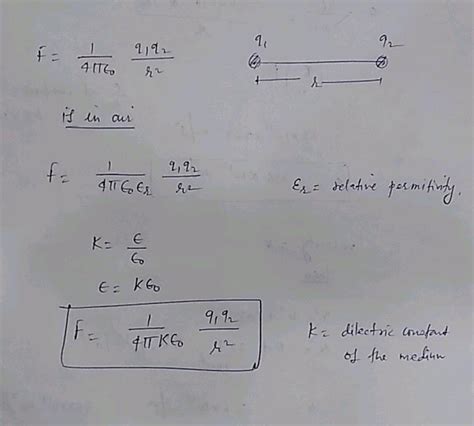 F = 1/4πϵ₀ q₁q₂/r²
q₁ q₂
r
is in air
F = 1/4πϵ₀ϵr q₁q₂/r²
ϵr = relative permitivity.
K = ϵ/ϵ₀
ϵ = Kϵ₀
F = 1/4πKϵ₀ q₁q₂/r²
K = dilectric constant
of the medium